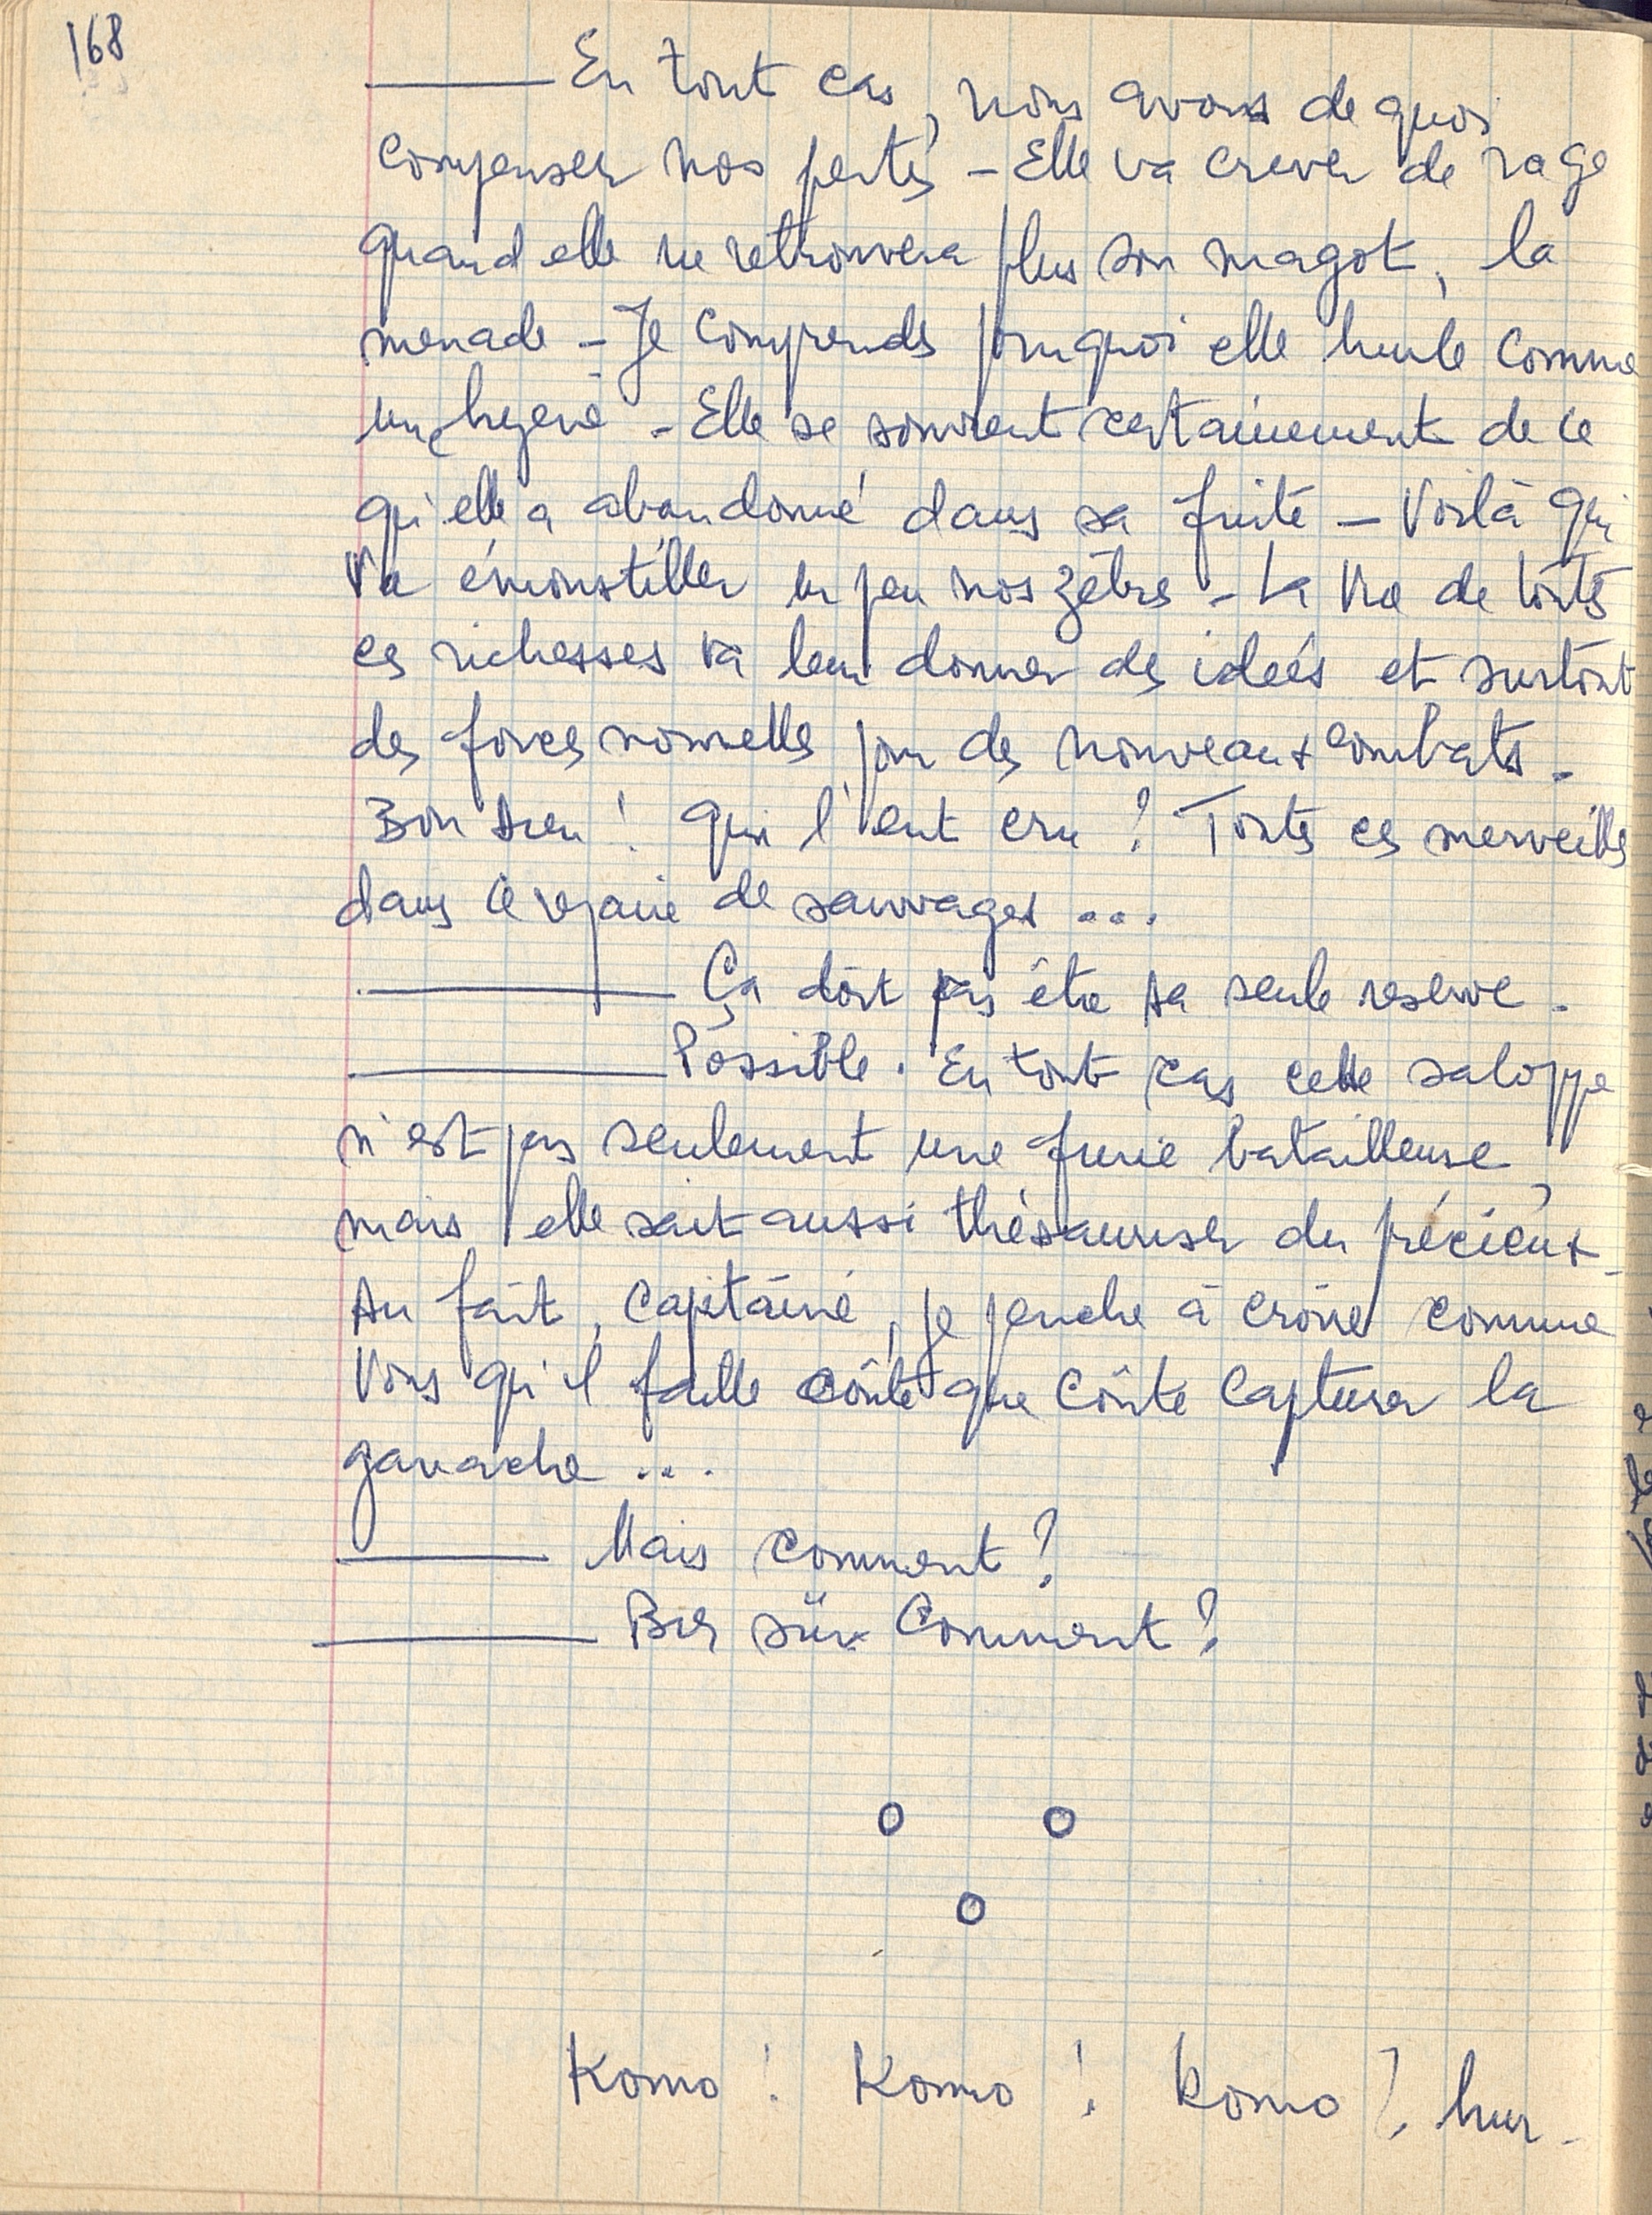 168
— En tout cas, nous avons de quoi
compenser nos pertes – Elle va crever de rage
quand elle ne retrouvera plus son magot, la
menade – Je comprends pourquoi elle hurle comme
une hyene – Elle se souvient certainement de ce
qu'elle a abandonné dans sa fuite – Voilà qui
va émoustiller un peu nos zèbres – La vue de toutes
ces richesses va leur donner des idées et surtout
des forces nouvelles pour de nouveaux combats –
Bon dieu ! Qui l'eut cru ? Toutes ces merveilles
dans ce repaire de sauvages ...
— Ça doit pas être sa seule reserve.
— Possible. En tout cas cette saloppe
n'est pas seulement une furie batailleuse,
mais elle sait aussi thésauriser du précieux –
Au fait, capitaine, je penche à croire comme
vous qu'il faille coûte que coûte capturer la
ganache ...
— Mais comment ?
— Bien sûr comment ?
o o
o
Komo ! Komo ! Komo !, hur-